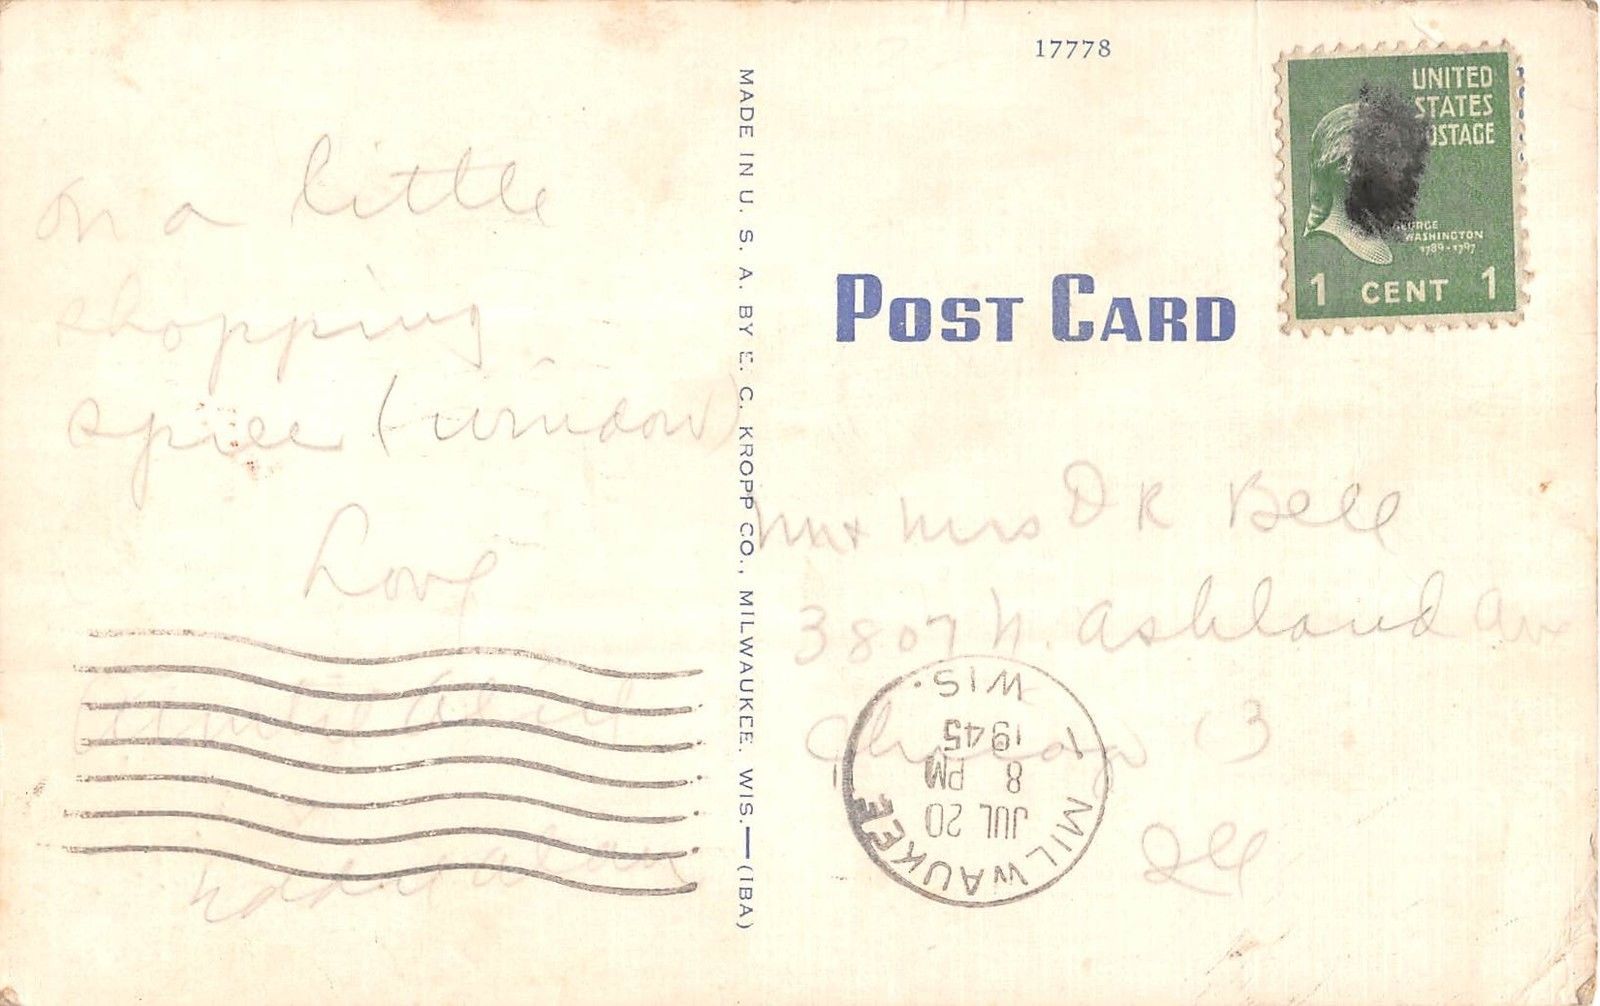 on a little
shopping
spree (window)
Love
17778
UNITED
STATES
POSTAGE
GEORGE
WASHINGTON
1789-1797
1 CENT 1
POST CARD
MADE IN U. S. A. BY E. C. KROPP CO., MILWAUKEE, WIS.—(1BA)
Mr + Mrs D R Bell
3807 N. Ashland Ave
Chicago 13
Ill
MILWAUKEE 1
WIS.
JUL 20
8 PM
1945